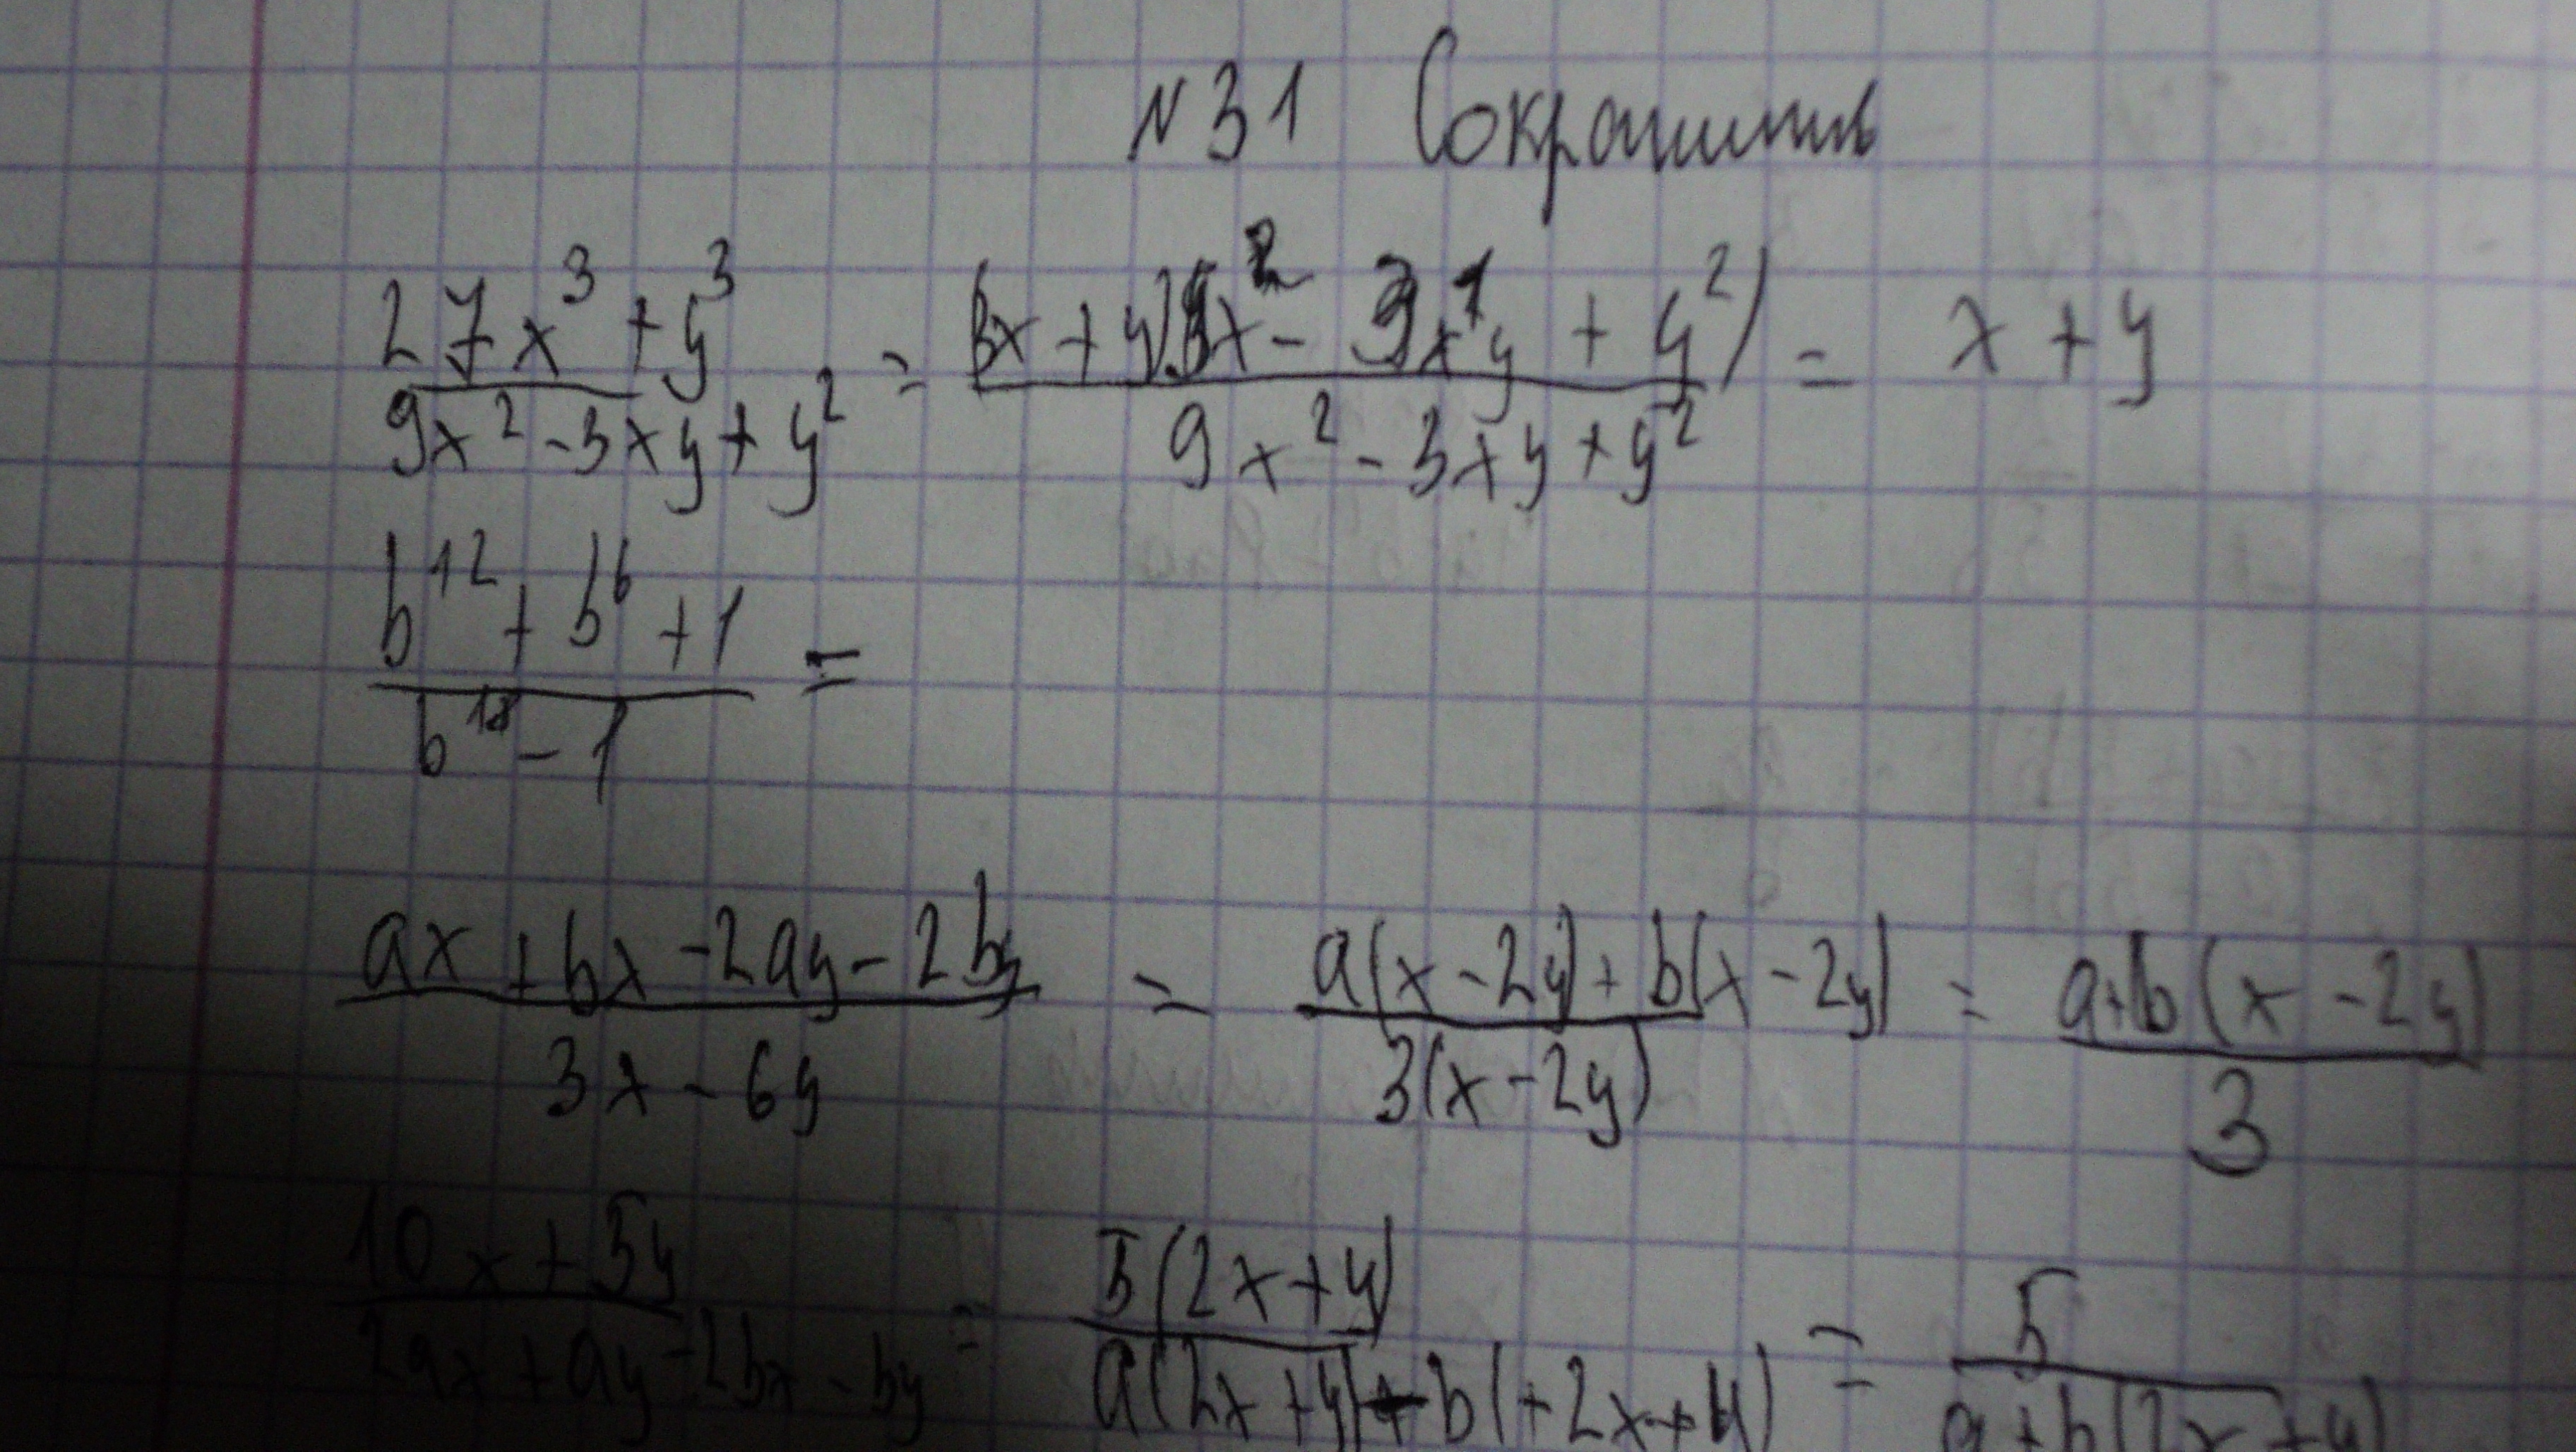 №31 Сократить
27x³+y³/9x²-3xy+y² = (3x+y)(9x²-3x¹y+y²)/9x²-3xy+y² = x+y
b¹²+b⁶+1/b¹⁸-1 =
ax+bx-2ay-2by/3x-6y = a(x-2y)+b(x-2y)/3(x-2y) = a+b(x-2y)/3
10x+5y/2ax+ay-2bx-by = 5(2x+y)/a(2x+y)-b(+2x+y) = 5/a+b(2x+y)